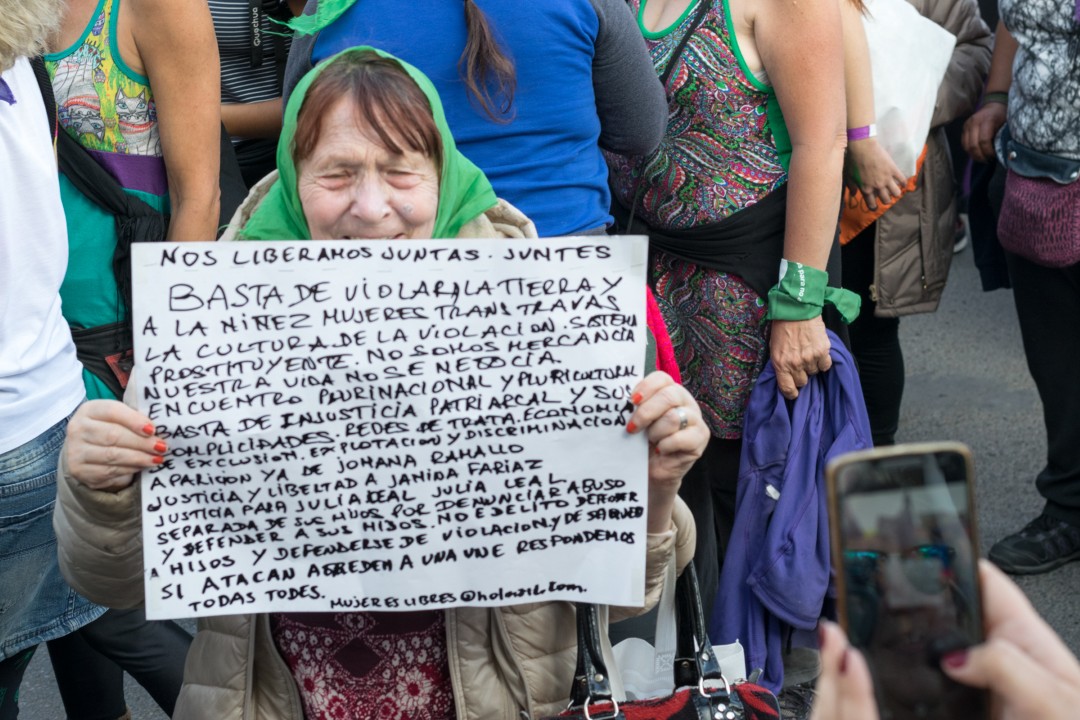 Quechua
NOS LIBERAMOS JUNTAS. JUNTES
BASTA DE VIOLAR A LA TIERRA Y
A LA NIÑEZ MUJERES TRANS TRAVAS
LA CULTURA DE LA VIOLACION. SISTEMA
PROSTITUYENTE. NO SOMOS MERCANCIA
NUESTRA VIDA NO SE NEGOCIA.
ENCUENTRO PLURINACIONAL Y PLURICULTURAL
BASTA DE INJUSTICIA PATRIARCAL Y SUS
COMPLICIDADES. REDES DE TRATA. ECONOMIA
DE EXCLUSION. EXPLOTACION Y DISCRIMINACION
APARICION YA DE JOHANA RAMALLO
JUSTICIA Y LIBERTAD A JANINA FARIAZ
JUSTICIA PARA JULIA LEAL JULIA LEAL
SEPARADA DE SUS HIJOS POR DENUNCIAR ABUSO
Y DEFENDER A SUS HIJOS. NO ES DELITO DEFENDER
A HIJOS Y DEFENDERSE DE VIOLACION Y DE
SI ATACAN AGREDEN A UNA UNE RESPONDEMOS
TODAS TODES. MUJERESLIBRES@hotmail.com.